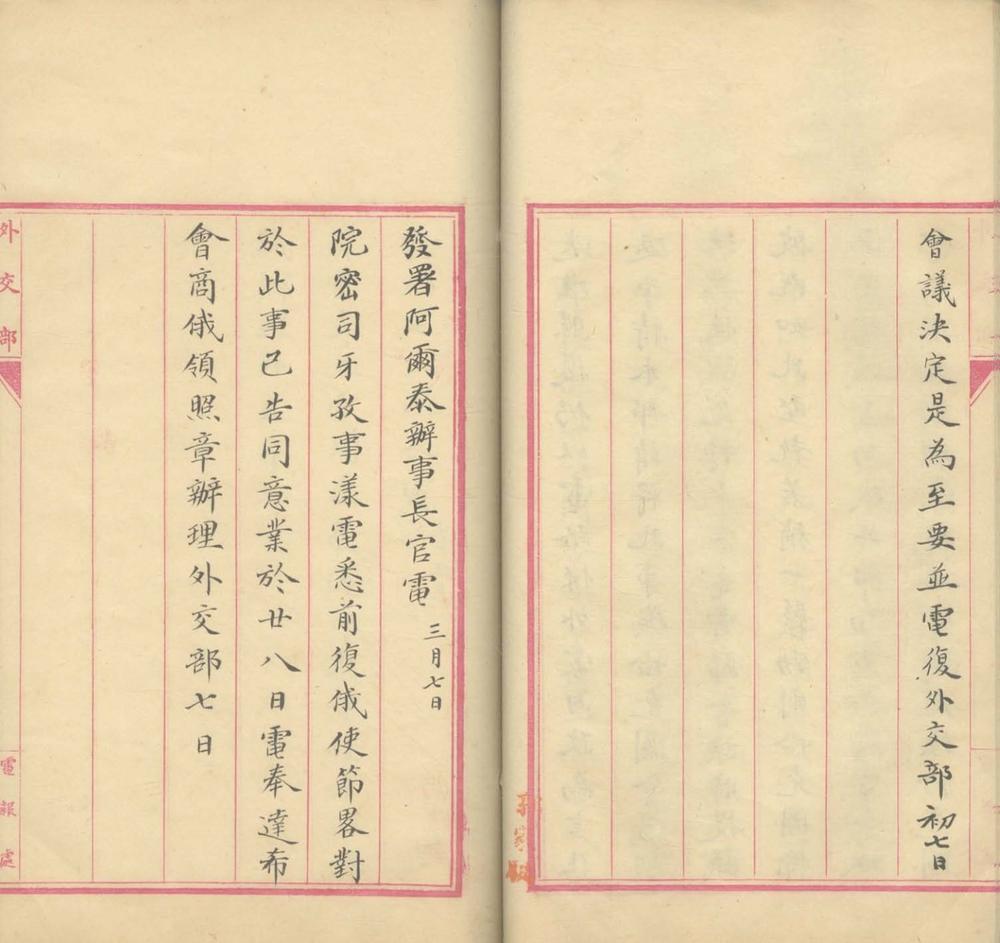 會議決定是為至要並電復外交部初七日
發署阿爾泰辦事長官電 三月七日
院密司牙孜事漾電悉前復俄使節畧對
於此事已告同意業於廿八日電奉達布
會商俄領照章辦理外交部七日
外交部
電報處